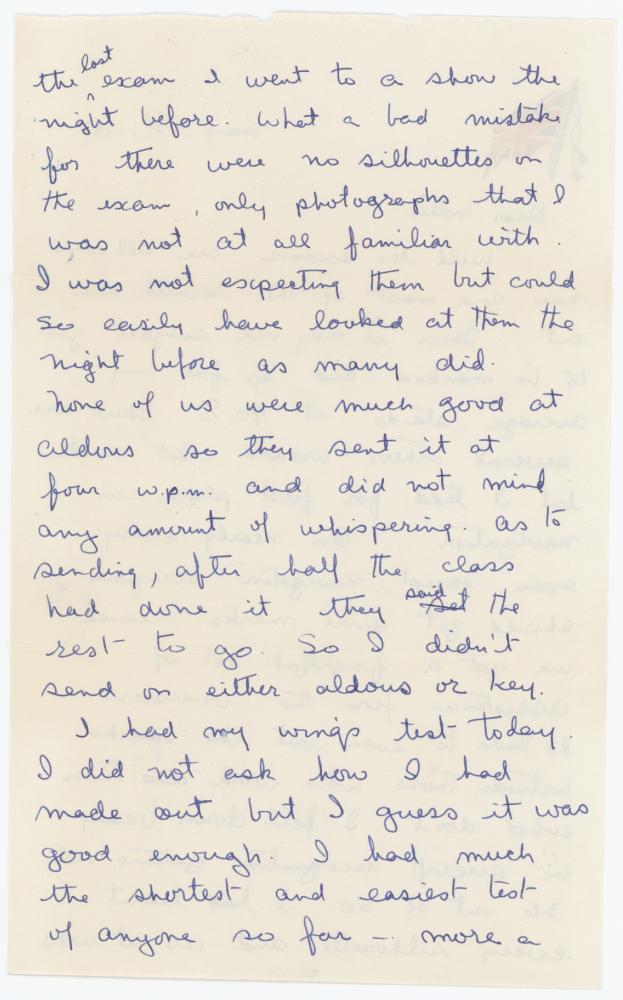 the last exam I went to a show the
night before. What a bad mistake
for there were no silhouettes on
the exam, only photographs that I
was not at all familiar with.
I was not expecting them but could
so easily have looked at them the
night before as many did.
None of us were much good at
aldous so they sent it at
four w.p.m. and did not mind
any amount of whispering as to
sending, after half the class
had done it they said the
rest to go. So I didn't
send on either aldous or key.
I had my wings test today.
I did not ask how I had
made out but I guess it was
good enough. I had much
the shortest and easiest test
of anyone so far – more a